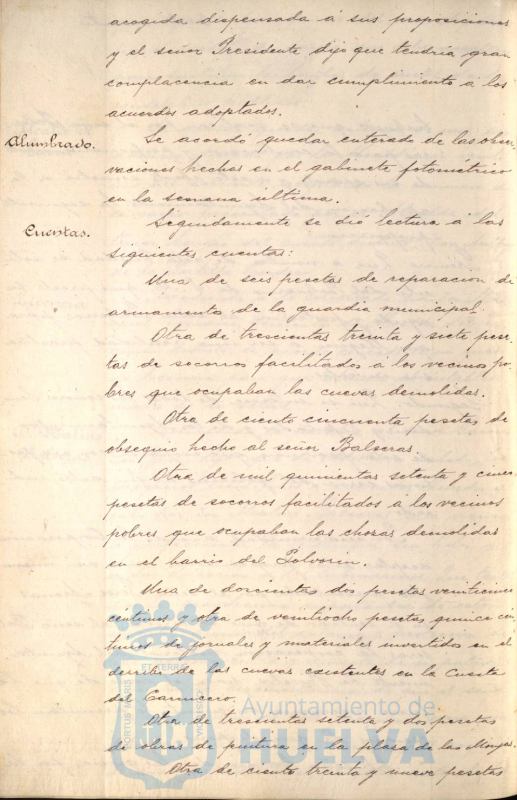 acogida dispensada á sus proposiciones
y el señor Presidente dijo que tendría gran
complacencia en dar cumplimiento á los
acuerdos adoptados.
Alumbrado.
Se acordó quedar enterado de las obser-
vaciones hechas en el gabinete fotométrico
en la semana última.
Cuentas.
Seguidamente se dió lectura á las
siguientes cuentas:
Una de seis pesetas de reparacion de
armamento de la guardia municipal.
Otra de trescientas treinta y siete pese-
tas de socorros facilitados á los vecinos po-
bres que ocupaban las cuevas demolidas.
Otra de ciento cincuenta pesetas de
obsequio hecho al señor Balseras.
Otra de mil quinientas setenta y cinco
pesetas de socorros facilitados á los vecinos
pobres que ocupaban las chozas demolidas
en el barrio del Polvorin.
Una de doscientas dos pesetas veinticinco
centimos y otra de veintiocho pesetas quince cen-
timos de jornales y materiales invertidos en el
derribo de las cuevas existentes en la Cuesta
del Carnicero.
Otra de trescientas setenta y dos pesetas
de obras de pintura en la plaza de las Monjas.
Otra de ciento treinta y nueve pesetas
PORTUS MARIS
ET TERRÆ
CUSTODIA
Ayuntamiento de
HUELVA